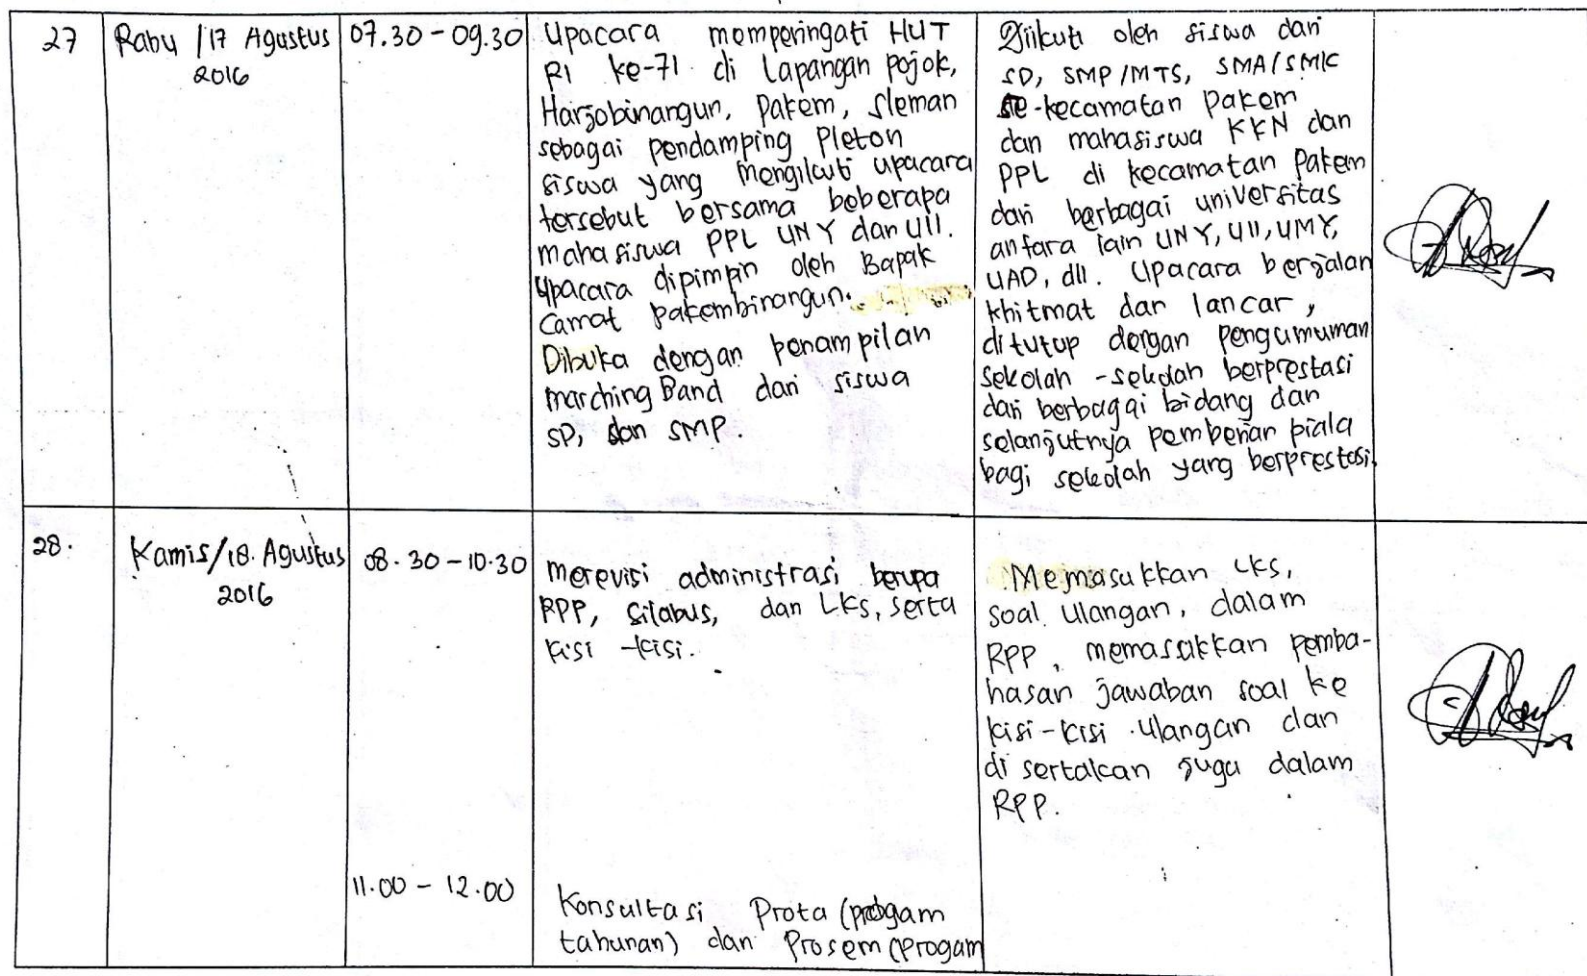 27
Rabu / 17 Agustus
2016
07.30 - 09.30
Upacara memperingati HUT
RI ke-71 di Lapangan pojok,
Harjobinangun, Pakem, Sleman
sebagai pendamping Pleton
siswa yang mengikuti upacara
tersebut bersama beberapa
mahasiswa PPL UNY dan UII.
Upacara dipimpin oleh Bapak
Camat Pakembinangun.
Dibuka dengan penampilan
marching Band dari siswa
SD, dan SMP.
Diikuti oleh siswa dari
SD, SMP/MTS, SMA/SMK
se-kecamatan Pakem
dan mahasiswa KKN dan
PPL di kecamatan Pakem
dari berbagai universitas
antara lain UNY, UII, UMY,
UAD, dll. Upacara berjalan
khitmat dan lancar,
ditutup dengan pengumuman
sekolah-sekolah berprestasi
dari berbagai bidang dan
selanjutnya pemberian piala
bagi sekolah yang berprestasi.
28.
Kamis/18. Agustus
2016
08.30 - 10.30
merevisi administrasi berupa
RPP, Silabus, dan LKS, serta
kisi-kisi.
Memasukkan LKS,
soal ulangan, dalam
RPP, memasukkan pemba-
hasan jawaban soal ke
kisi-kisi ulangan dan
disertakan juga dalam
RPP.
11.00 - 12.00
Konsultasi Prota (progam
tahunan) dan Prosem (Progam